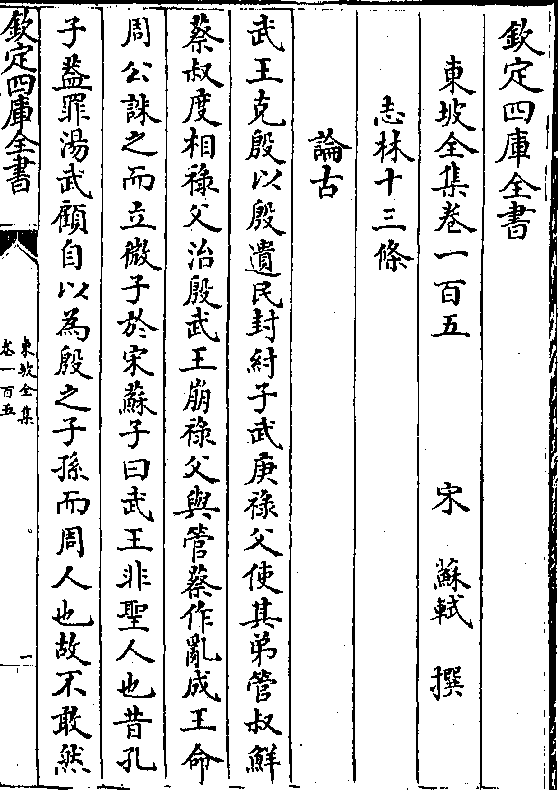 欽定四庫全書
東坡全集卷一百五
宋 蘇軾 撰
志林十三條
論古
武王克殷以殷遺民封紂子武庚祿父使其弟管叔鮮
蔡叔度相祿父治殷武王崩祿父與管蔡作亂成王命
周公誅之而立微子於宋蘇子曰武王非聖人也昔孔
子蓋罪湯武顧自以為殷之子孫而周人也故不敢然
欽定四庫全書
東坡全集
卷一百五
一